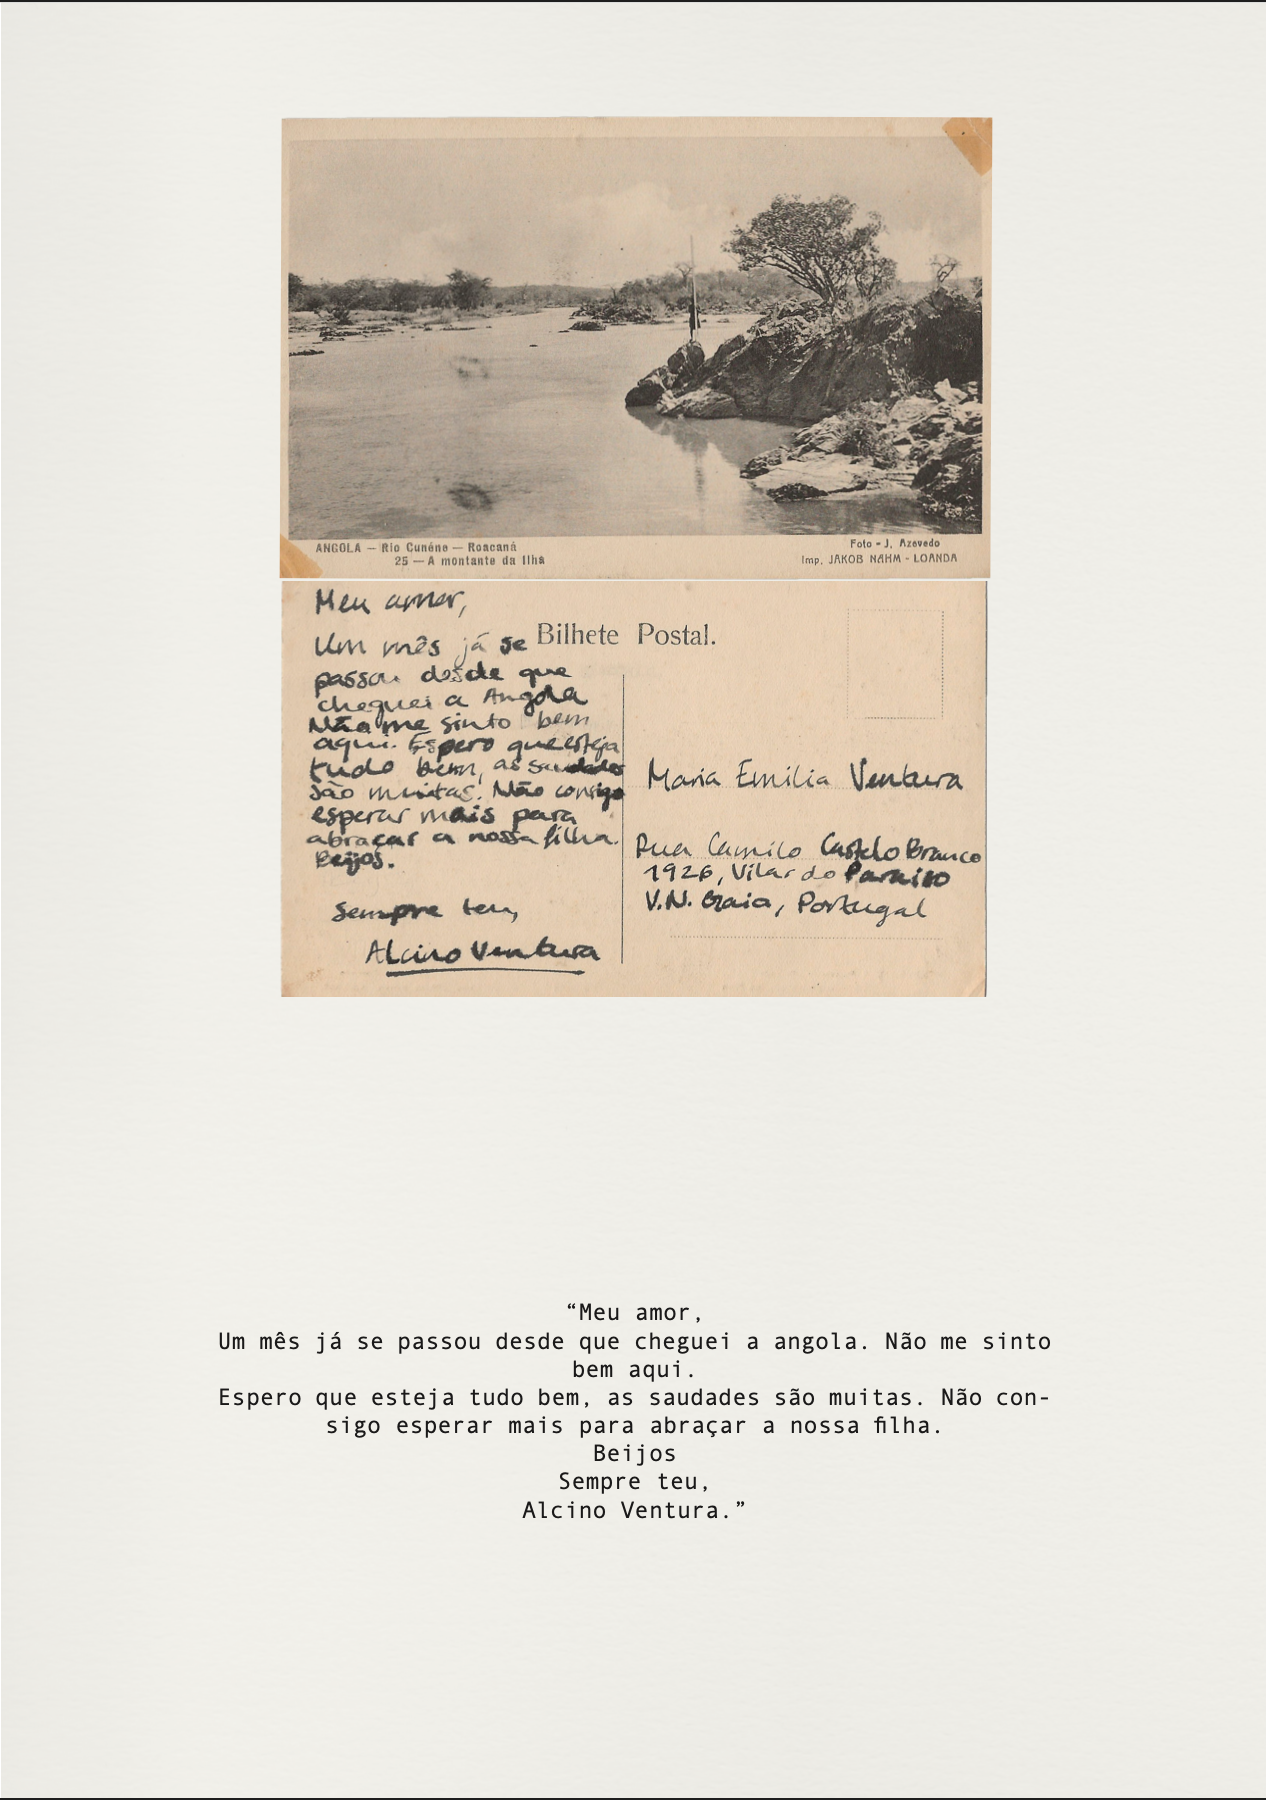 ANGOLA — Rio Cunéne — Roacaná
25 — A montante da Ilha
Foto - J. Azevedo
Imp. JAKOB NAHM - LOANDA
Bilhete Postal.
Meu amor,
Um mês já se
passou desde que
cheguei a Angola
Não me sinto bem
aqui. Espero que esteja
tudo bem, as saudades
são muitas. Não consigo
esperar mais para
abraçar a nossa filha.
Beijos.
Sempre teu,
Alcino Ventura
Maria Emilia Ventura
Rua Camilo Castelo Branco
1926, Vilar do Paraiso
V.N. Gaia, Portugal
“Meu amor,
Um mês já se passou desde que cheguei a angola. Não me sinto
bem aqui.
Espero que esteja tudo bem, as saudades são muitas. Não con-
sigo esperar mais para abraçar a nossa filha.
Beijos
Sempre teu,
Alcino Ventura.”